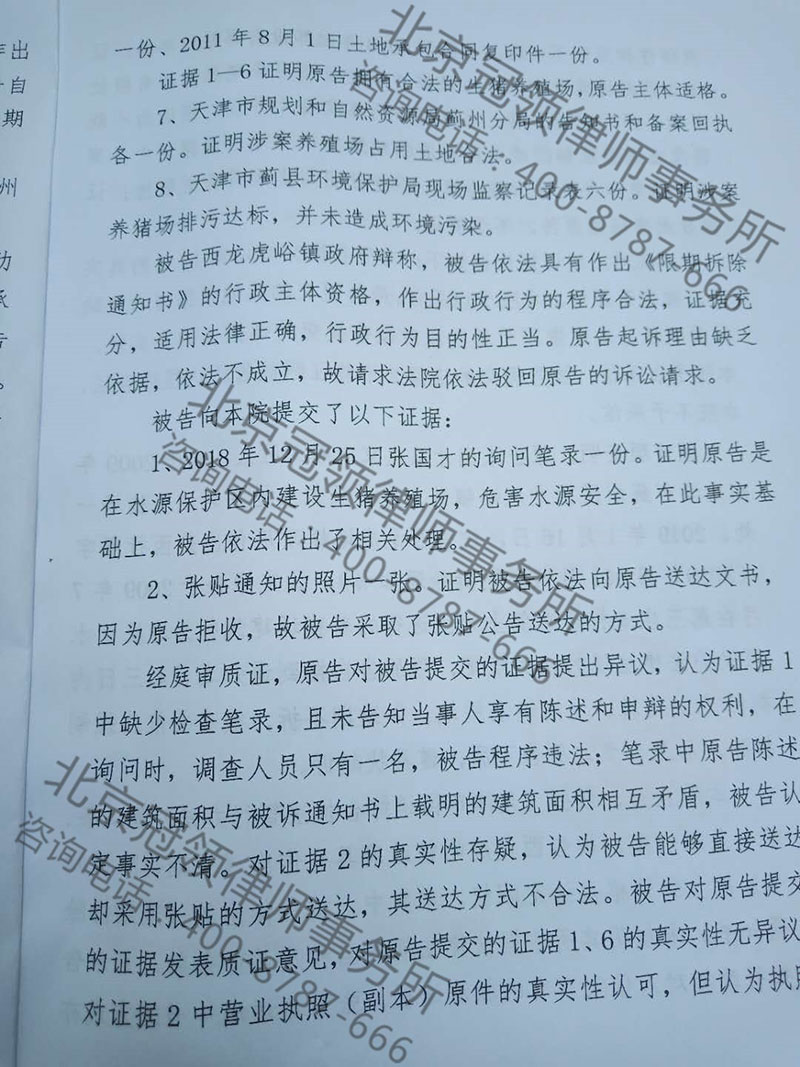 一份、2011年8月1日土地承包合同复印件一份。
证据1—6证明原告拥有合法的生猪养殖场,原告主体适格。
7、天津市规划和自然资源局蓟州分局的告知书和备案回执
各一份。证明涉案养殖场占用土地合法。
8、天津市蓟县环境保护局现场监察记录表六份。证明涉案
养猪场排污达标，并未造成环境污染。
被告西龙虎峪镇政府辩称，被告依法具有作出《限期拆除
通知书》的行政主体资格，作出行政行为的程序合法，证据充
分，适用法律正确，行政行为目的性正当。原告起诉理由缺乏
依据，依法不成立，故请求法院依法驳回原告的诉讼请求。
被告向本院提交了以下证据：
1、2018年12月25日张国才的询问笔录一份。证明原告是
在水源保护区内建设生猪养殖场，危害水源安全，在此事实基
础上，被告依法作出了相关处理。
2、张贴通知的照片一张。证明被告依法向原告送达文书，
因为原告拒收，故被告采取了张贴公告送达的方式。
经庭审质证，原告对被告提交的证据提出异议，认为证据1
中缺少检查笔录，且未告知当事人享有陈述和申辩的权利，在
询问时，调查人员只有一名，被告程序违法；笔录中原告陈述
的建筑面积与被诉通知书上载明的建筑面积相互矛盾，被告认
定事实不清。对证据2的真实性存疑，认为被告能够直接送达
却采用张贴的方式送达，其送达方式不合法。被告对原告提交
的证据发表质证意见，对原告提交的证据1、6的真实性无异议
对证据2中营业执照（副本）原件的真实性认可，但认为执照
作出
自
期
州
功
承
告
北京冠领律师事务所
咨询电话：400-8787-666
北京冠领律师事务所
咨询电话：400-8787-666
北京冠领律师事务所
咨询电话：400-8787-666